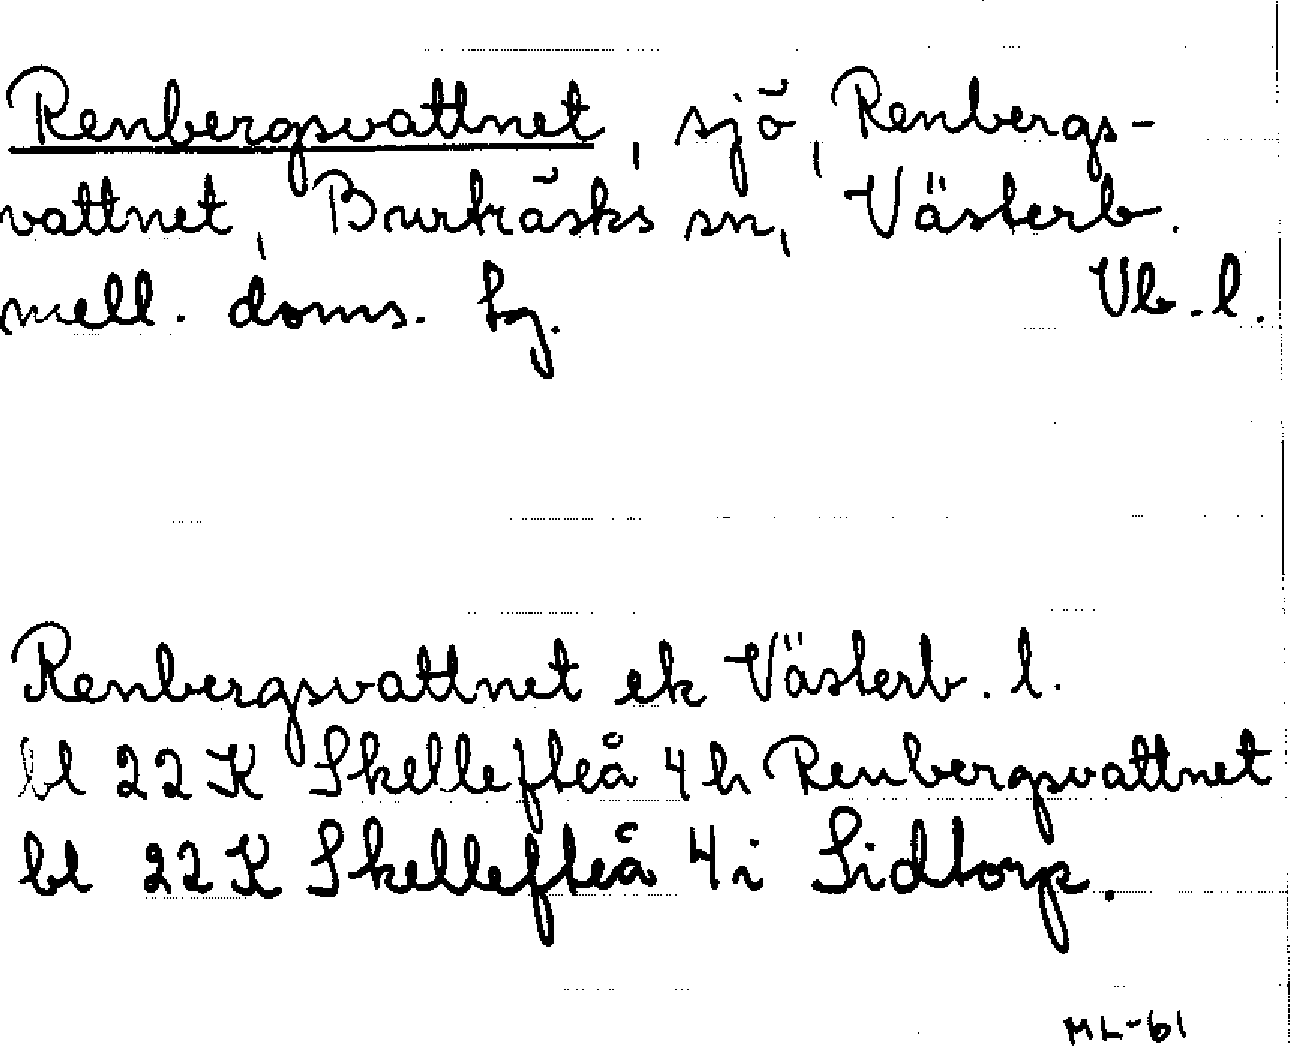 Renbergsvattnet, sjö, Renbergs-
vattnet, Burträsks sn, Västerb.
mell. doms. tg. Vb. l.
Renbergsvattnet ek Västerb. l.
bl 22 K Skellefteå 4 h Renbergsvattnet
bl 22 K Skellefteå 4 i Sidtorp.
ML-61